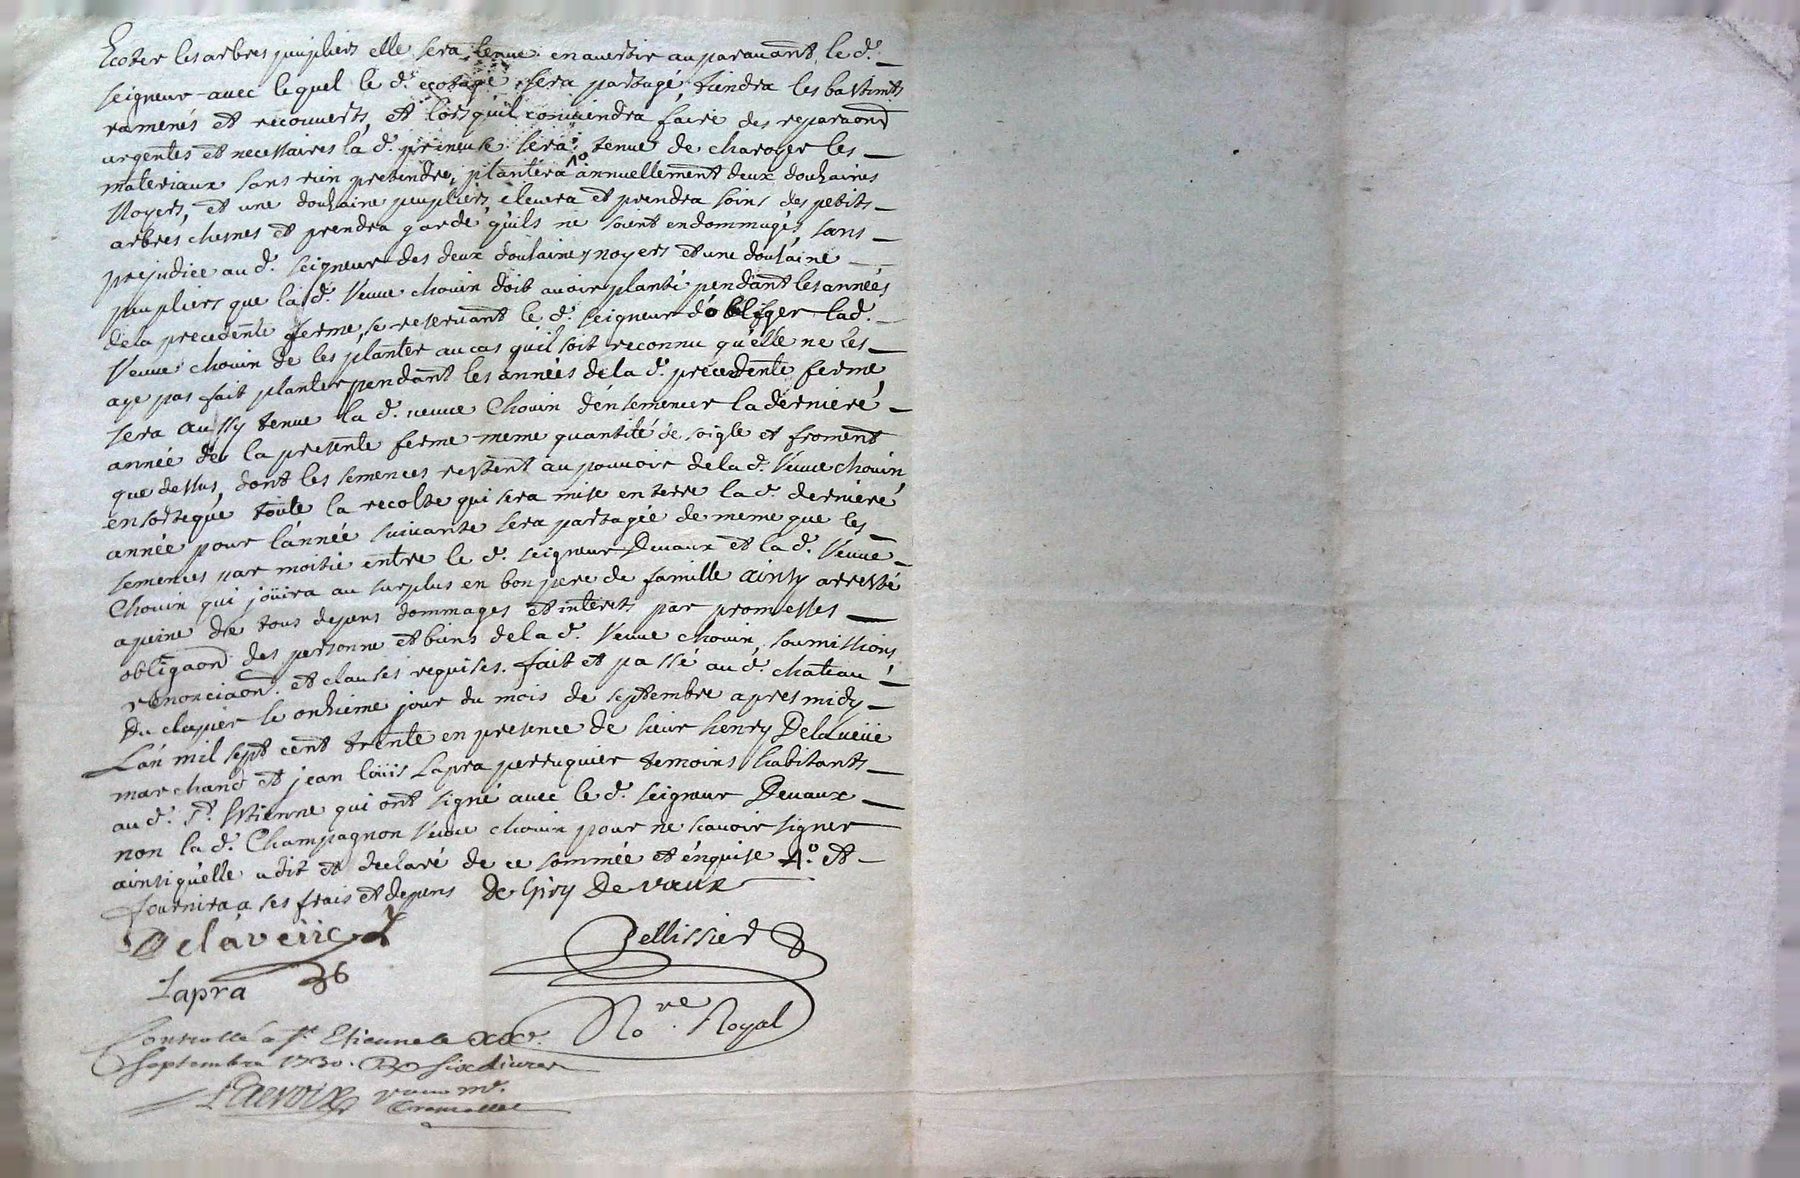 Ecoter les arbres peupliers elle sera tenue en avertir auparavant le d.
seigneur avec lequel le d. ecotage sera partagé, tiendra les bastimts
ramenés et recouverts, et lorsqu'il conviendra faire des reparaons
urgentes et necessaires la d. preneuse sera tenue de charoyer les
materiaux sans rien pretendre, plantera 1o annuellement deux douhaines
Noyers, et une douhaine peupliers, elevera et prendra soins des petits
arbres chesnes et prendra garde qu'ils ne soient endommagés, sans
prejudice au d. seigneur des deux douhaines noyers et une douhaine
peupliers que la d. Veuve chouin doit avoir planté pendant les années
de la precedente ferme, se reservant le d. seigneur d'obliger lad.
Veuve chouin de les planter au cas qu'il soit reconnu qu'elle ne les
aye pas fait planter pendant les années de la d. precedente ferme,
sera aussy tenue la d. veuve Chouin d'ensemencer la derniere
année de la presente ferme meme quantité de soigle et froment
que dessus, dont les semences restent au pouvoir de la d. Veuve chouin,
en sorte que toute la recolte qui sera mise en terre la d. derniere
année pour l'année suivante sera partagée de meme que les
semences par moitié entre le d. seigneur Devaux et la d. Veuve
Chouin qui joüira au surplus en bon pere de famille ainsy arresté
a peine de tous depens dommages et interets par promesses
obligaons des personne et biens de la d. Veuve chouin, soumissions
renonciaons et clauses requises. fait et passé au d. chateau
Du clapier le onhieme jour du mois de septembre apres midy
L'an mil sept cent trente en presence de sieur henry Delaveüe
marchand et jean loüis Lapra perruquier temoins habitants
au d. St. Estienne qui ont signé avec le d. seigneur Devaux
non la d. Champagnon Veuve chouin pour ne scavoir signer
ainsi qu'elle a dit et declaré de ce sommée et enquise 1o. et
fournira a ses frais et depens de Spry De vaux
Delaveüe
Pellissier
Lapra
No.re Royal
Controllé a St. Etienne le
Septembre 1730. R six livres